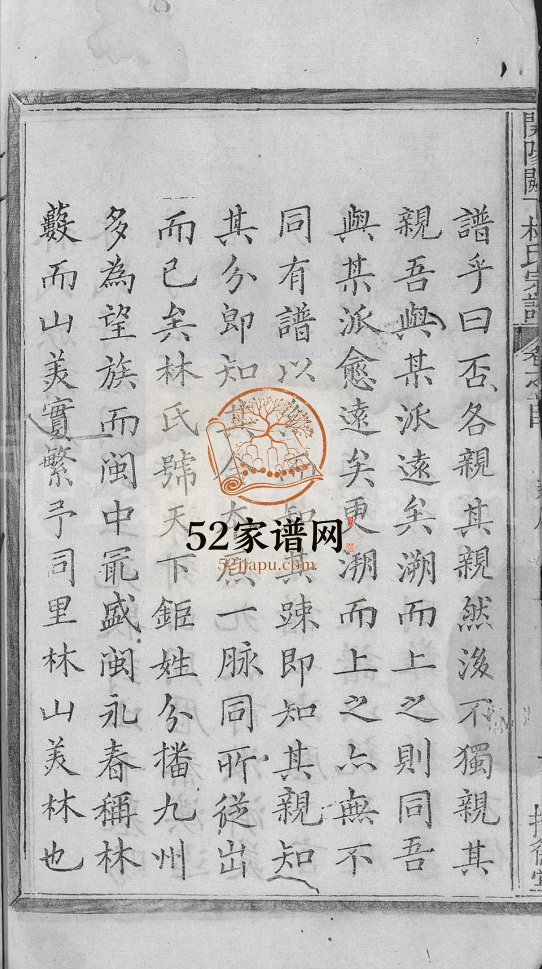 譜乎曰否各親其親然後不獨親其
親吾與某派遠矣溯而上之則同吾
與某派愈遠矣更溯而上之亦無不
同有譜以知其踈即知其親知
其分即知其合本原一脉同所從出
而已矣林氏號天下鉅姓分播九州
多為望族而閩中冣盛閩永春稱林
藪而山美實繁予同里林山美林也
林氏宗譜
卷之首
52家谱网
52jiapu.com